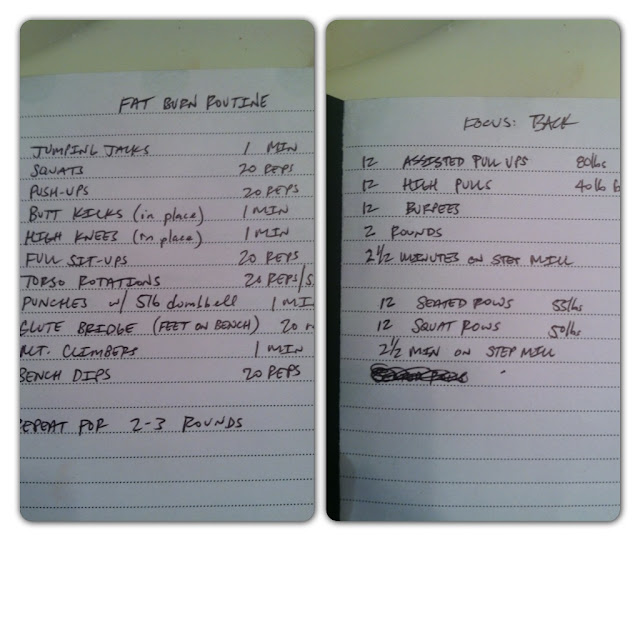 FAT BURN ROUTINE
JUMPING JACKS 1 MIN
SQUATS 20 REPS
PUSH-UPS 20 REPS
BUTT KICKS (in place) 1 MIN
HIGH KNEES (in place) 1 MIN
FULL SIT-UPS 20 REPS
TORSO ROTATIONS 20 REPS/S
PUNCHES w/ 5lb dumbbell 1 MI
GLUTE BRIDGE (FEET ON BENCH) 20
MT. CLIMBERS 1 MIN
BENCH DIPS 20 REPS
EPEAT FOR 2-3 ROUNDS
FOCUS: BACK
12 ASSISTED PULL UPS 80lbs
12 HIGH PULLS 40lb
12 BURPEES
2 ROUNDS
2 1/2 MINUTES ON STEP MILL
12 SEATED ROWS 55lbs
12 SQUAT ROWS 50lbs
2 1/2 MIN ON STEP MILL